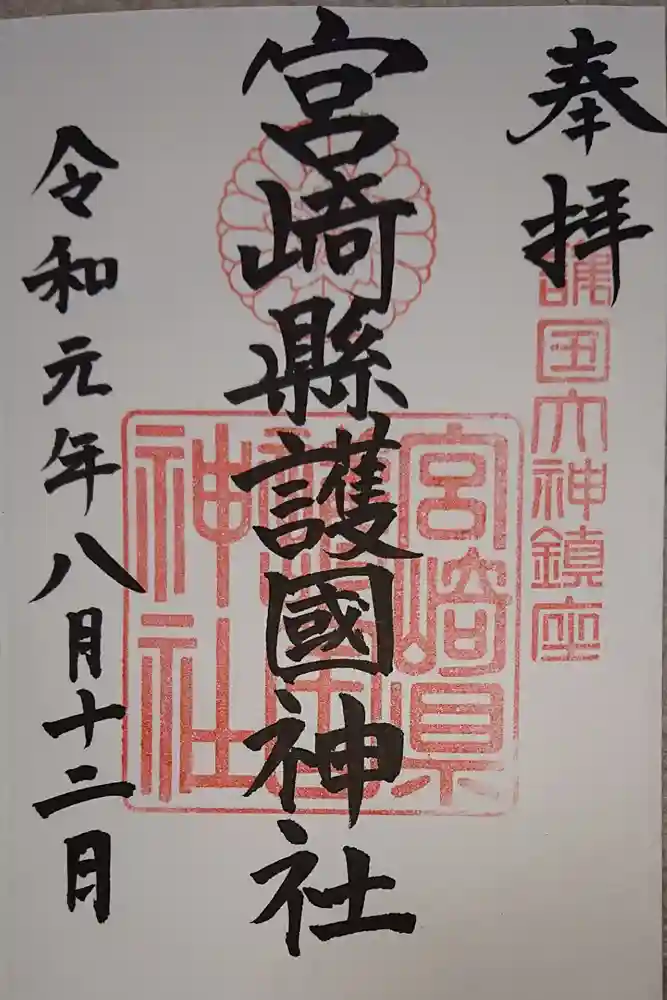 奉拝
護国大神鎮座
宮崎縣護國神社
宮崎県護国神社
令和元年八月十二日